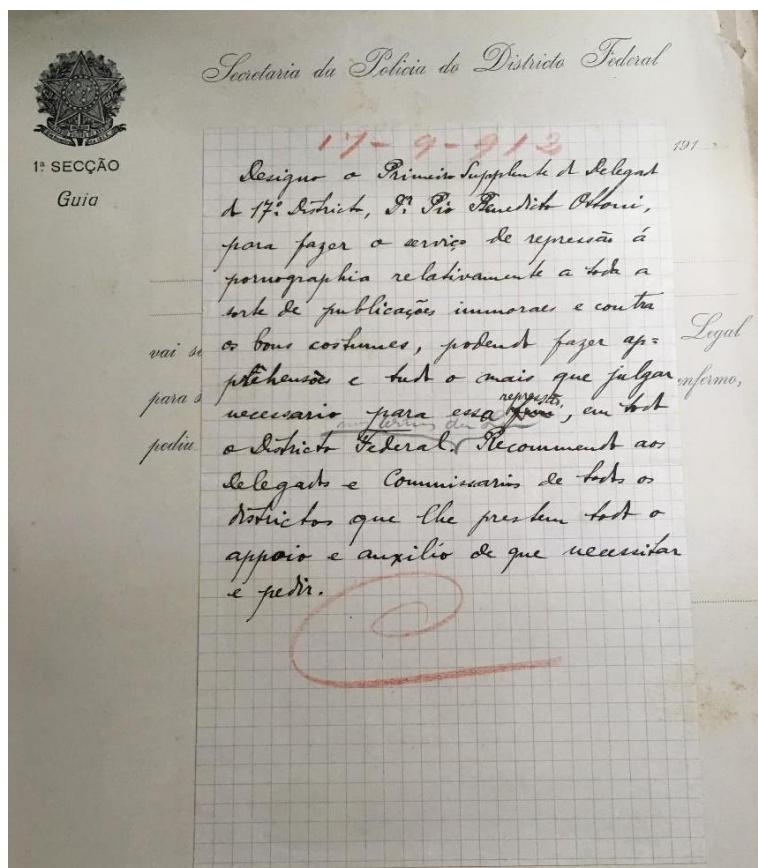 Secretaria da Policia do Districto Federal
1ª SECÇÃO
Guia
191
17-9-912
Designo o Primeiro Supplente d Delegad
d 17º Districto, Dr. Pio Benedicto Ottoni,
para fazer o serviço de repressão á
pornographia relativamente a toda a
sorte de publicações immoraes e contra
os bons costumes, podendo fazer ap=
prehensões e tudo o mais que julgar
repressão,
necessario para essa, em todo
nos termos da
o Districto Federal. Recommendo aos
delegados e Commissarios de todos os
districtos que lhe prestem todo o
appoio e auxilio de que necessitar
e pedir.
vai se
Legal
para s
enfermo,
pedia